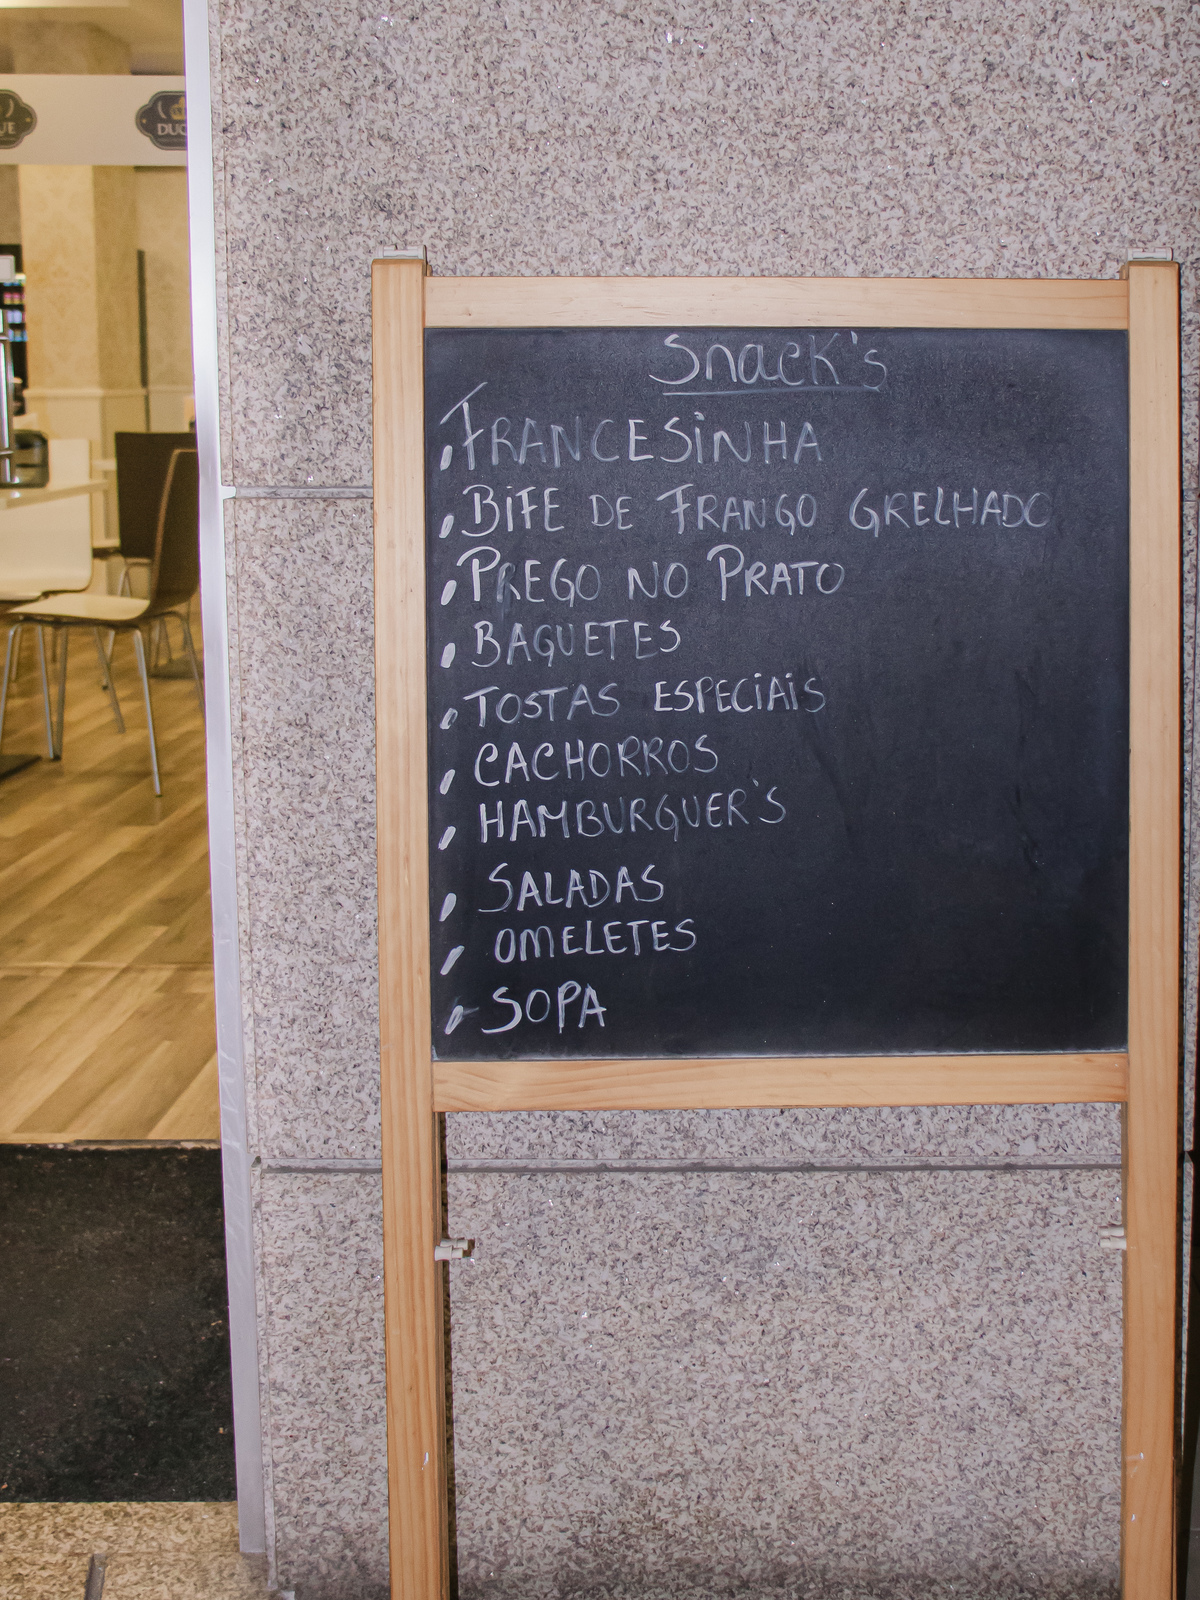 Snack's
FRANCESINHA
BIFE DE FRANGO GRELHADO
PREGO NO PRATO
BAGUETES
TOSTAS ESPECIAIS
CACHORROS
HAMBURGUER'S
SALADAS
OMELETES
SOPA